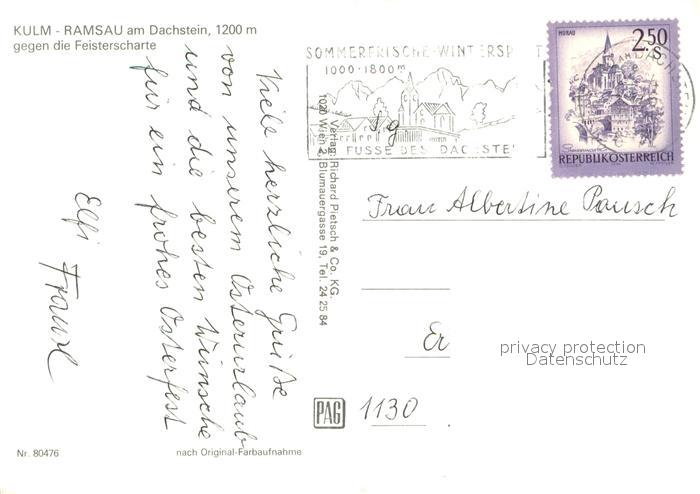 KULM - RAMSAU am Dachstein, 1200 m
gegen die Feisterscharte
Viele herzliche Grüße
von unserem Osterurlaub
und die besten Wünsche
für ein frohes Osterfest
Elfi Franzl
Nr. 80476
nach Original-Farbaufnahme
Verlag: Richard Pietsch & Co. KG.
1020 Wien 2, Blumauergasse 19, Tel. 24 25 84
SOMMERFRISCHE-WINTERSP
1000-1800m
FUSSE DES DACHSTE
MURAU
2.50
REPUBLIK ÖSTERREICH
Frau Albertine Pausch
Er
privacy protection
Datenschutz
PAG
1130